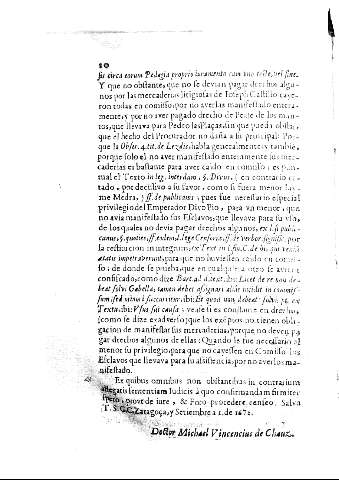 20
sis circa eorum Pedagia proprio iuramento cum uno teste, vel sine.
Y que no obstante, que no se devian pagar drechos algu-
nos por las mercaderias litigiosas de Ioseph Castillo caye-
ron todas en comisso, por no averlas manifestado entera-
mente, y por no aver pagado drecho de Peste de los man-
tos, que llevava para Pedro las Plaças, sin que pueda obstar,
que el hecho del Procurador no daña a su principal: Por-
que la Obser. 4. tit. de Lezdis, habla generalmente; y tambie,
porque solo el no aver manifestado enteramente sus mer-
caderias es bastante para aver caido en comisso: es pun-
tual el Texto in leg. interdum, §. Divus, en contrario ci-
tado, por decisivo a su favor, como si fuera menor
Medra, ff. de publicanis, pues fue necessario especial
privilegio del Emperador Divo Pio, para
no avia manifestado sus Esclavos, que llevava para su viñ
de los quales no devia pagar drechos algunos, ex l. si publi-
canus, §. quoties, ff. eod. leg. Censoria, ff. de verbor. signific. por
la restitucion in integrum, ex Text. in l. fin. C. de his qui veniã
ætatis impetraverunt, para que no huviessen caido en comis-
so: de donde se prueba, que en cualquiera otro se averen
confiscado, como dize
beat solvi Gabella; tamen debet assignari alias incidit in commis-
sum
Text. ubi: Usus sui causa: verdad es constante en drecho,
(como se dize ex adverso) que los exẽptos no tienen obli-
gacion de manifestar sus mercaderias, porque no deven pa-
gar drechos algunos de ellas: Quando le fue necessario al
menor su privilegio, para que no cayessen en Comisso los
Esclavos que llevava para su assistencia, por no averlos ma-
nifestado.
Ex quibus omnibus non obstantibus in contrarium
allegatis sententiam Iudicis à quo confirmandam firmiter
spero, prout de iure, & Foro procedere censeo. Salva
T. S. C. Zaragoça, y Setiembre 21. de 1672.
Doctor Michael Vincencius de Chauz.